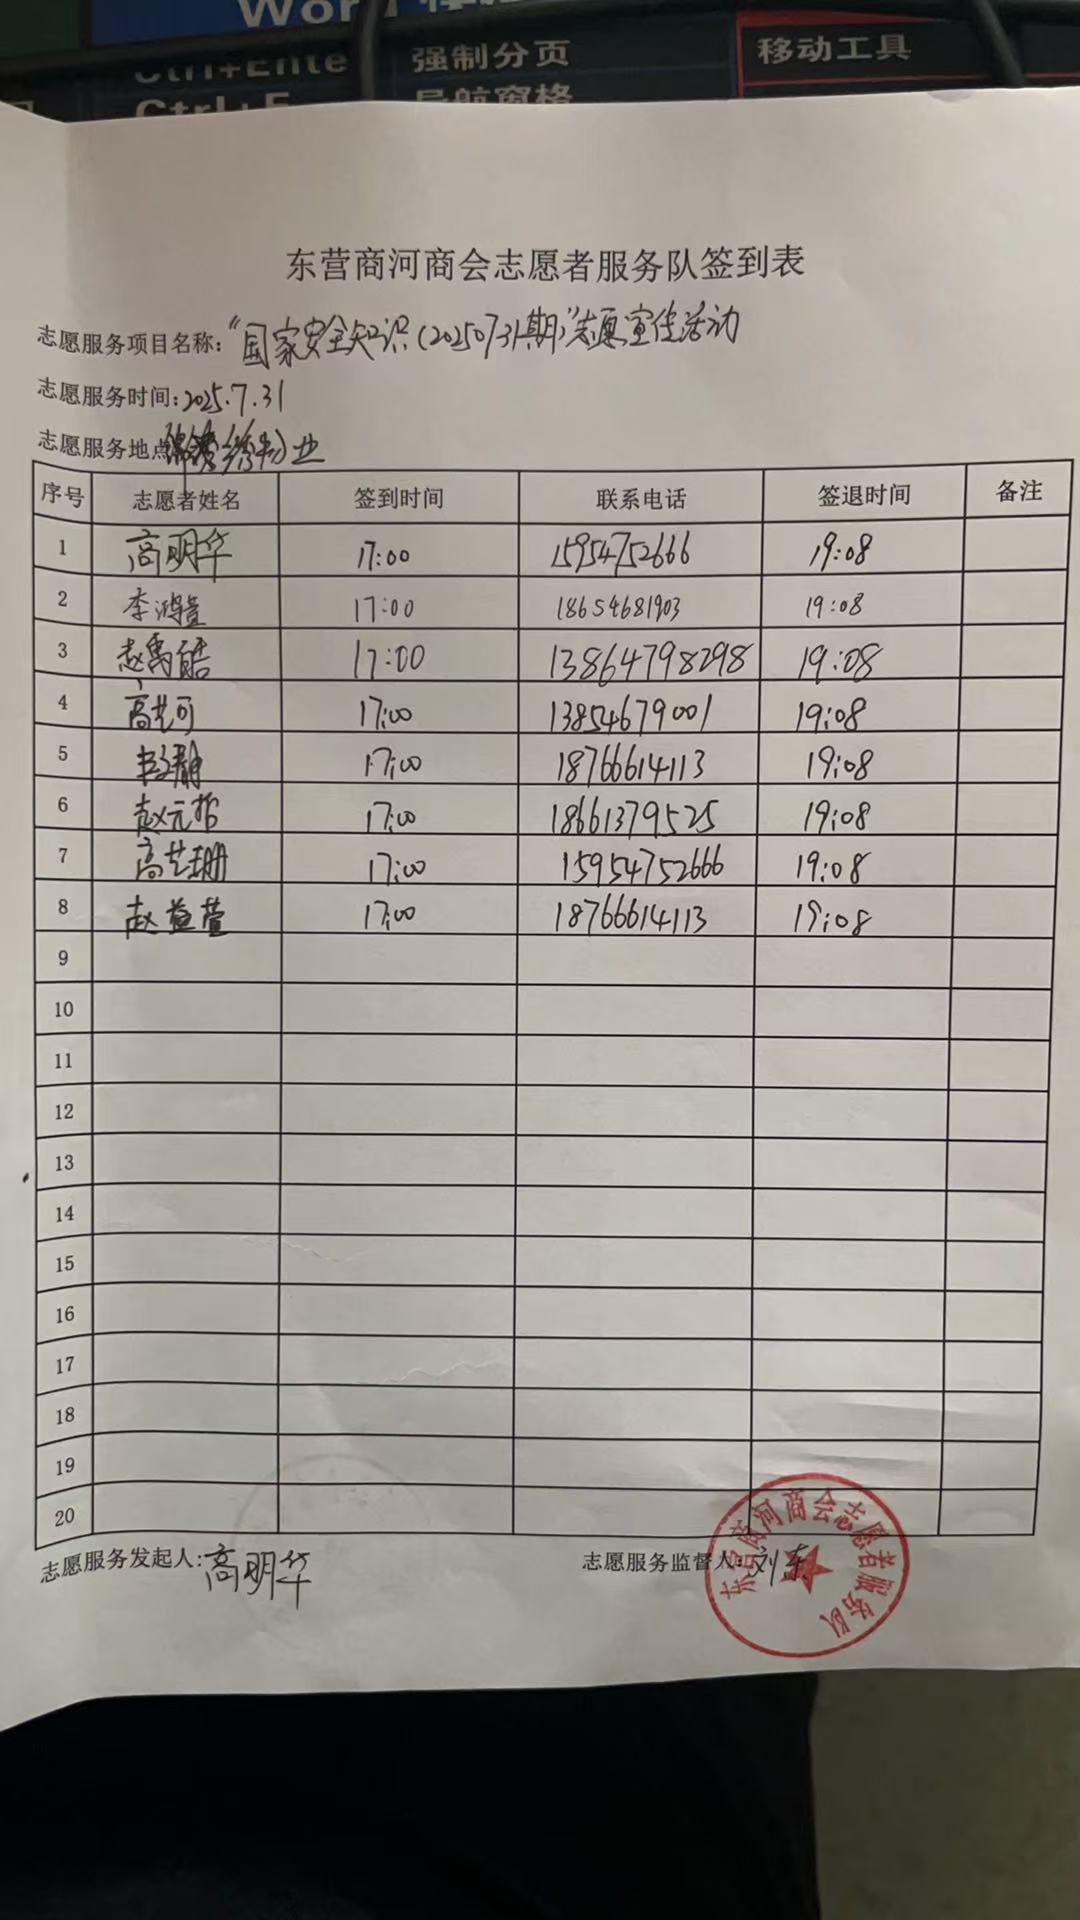 Word
Ctrl+Ente 强制分页 移动工具
Ctrl+F 导航窗格
东营商河商会志愿者服务队签到表
志愿服务项目名称:“国家安全知识(20250731期)”志愿宣传活动
志愿服务时间:2025.7.31
志愿服务地点 锦绣物业
序号 志愿者姓名 签到时间 联系电话 签退时间 备注
1 高明华 17:00 15954752666 19:08
2 李鸿萱 17:00 18654681903 19:08
3 赵禹皓 17:00 13864798298 19:08
4 高艺可 17:00 13854679001 19:08
5 17:00 18766614113 19:08
6 赵元哲 17:00 18661379525 19:08
7 高艺珊 17:00 15954752666 19:08
8 赵益萱 17:00 18766614113 19:08
9
10
11
12
13
14
15
16
17
18
19
20
志愿服务发起人:高明华 志愿服务监督人:刘东
东营商河商会志愿者服务队